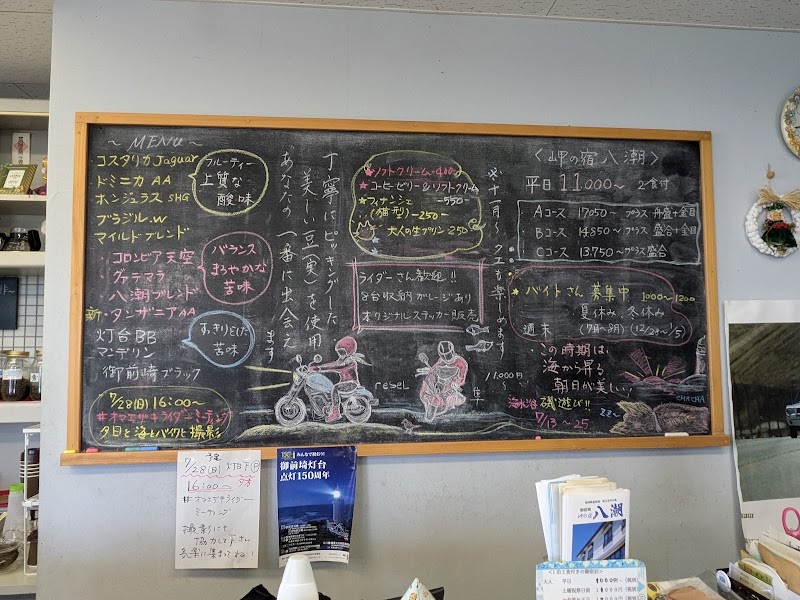 ～MENU～
コスタリカ Jaguar
ドミニカ AA
ホンジュラス SHG
ブラジル.W
マイルドブレンド
フルーティー
上質な
酸味
・コロンビア天空
・グァテマラ
・八潮ブレンド
新・タンザニアAA
バランス
まろやかな
苦味
灯台BB
マンデリン
御前崎ブラック
すっきりとした
苦味
7/28(日) 16:00～
#オマエザキライダーミーティング
夕日と海とバイクに撮影
丁寧にピッキングした
美しい豆(実)を使用
あなたの一番に出会えます
★ソフトクリーム・400
★コーヒーゼリー＆ソフトクリーム
-550-
★フィナンシェ
(猫型)-250-
大人の生プリン 250
ライダーさん歓迎!!
8台収納ガレージあり
オリジナルステッカー販売
rebel
隼
※十一月～クエも楽めます。
11,000円～
〈岬の宿 八潮〉
平日 11,000～ 2食付
Aコース 17,050～ プラス 舟盛+金目
Bコース 14,850～ プラス 盛合+金目
Cコース 13,750～ プラス 盛合
★バイトさん募集中 1000～1200
夏休み、冬休み
週末 (7月～8月) (12/29～1/5)
・この時期は、
海から昇る
朝日が美しい!
CHACHA
海水浴 磯遊び!!
7/13～25
zz～
予定
7/28(日) 灯台下(P)
16:00～夕方
#オマエザキライダー
ミーティング
撮影にも
協力して下さい
気楽に集まってね!
150th
みんなで読もう!
御前埼灯台
点灯150周年
御前崎
岬の宿 八潮
大人 平日